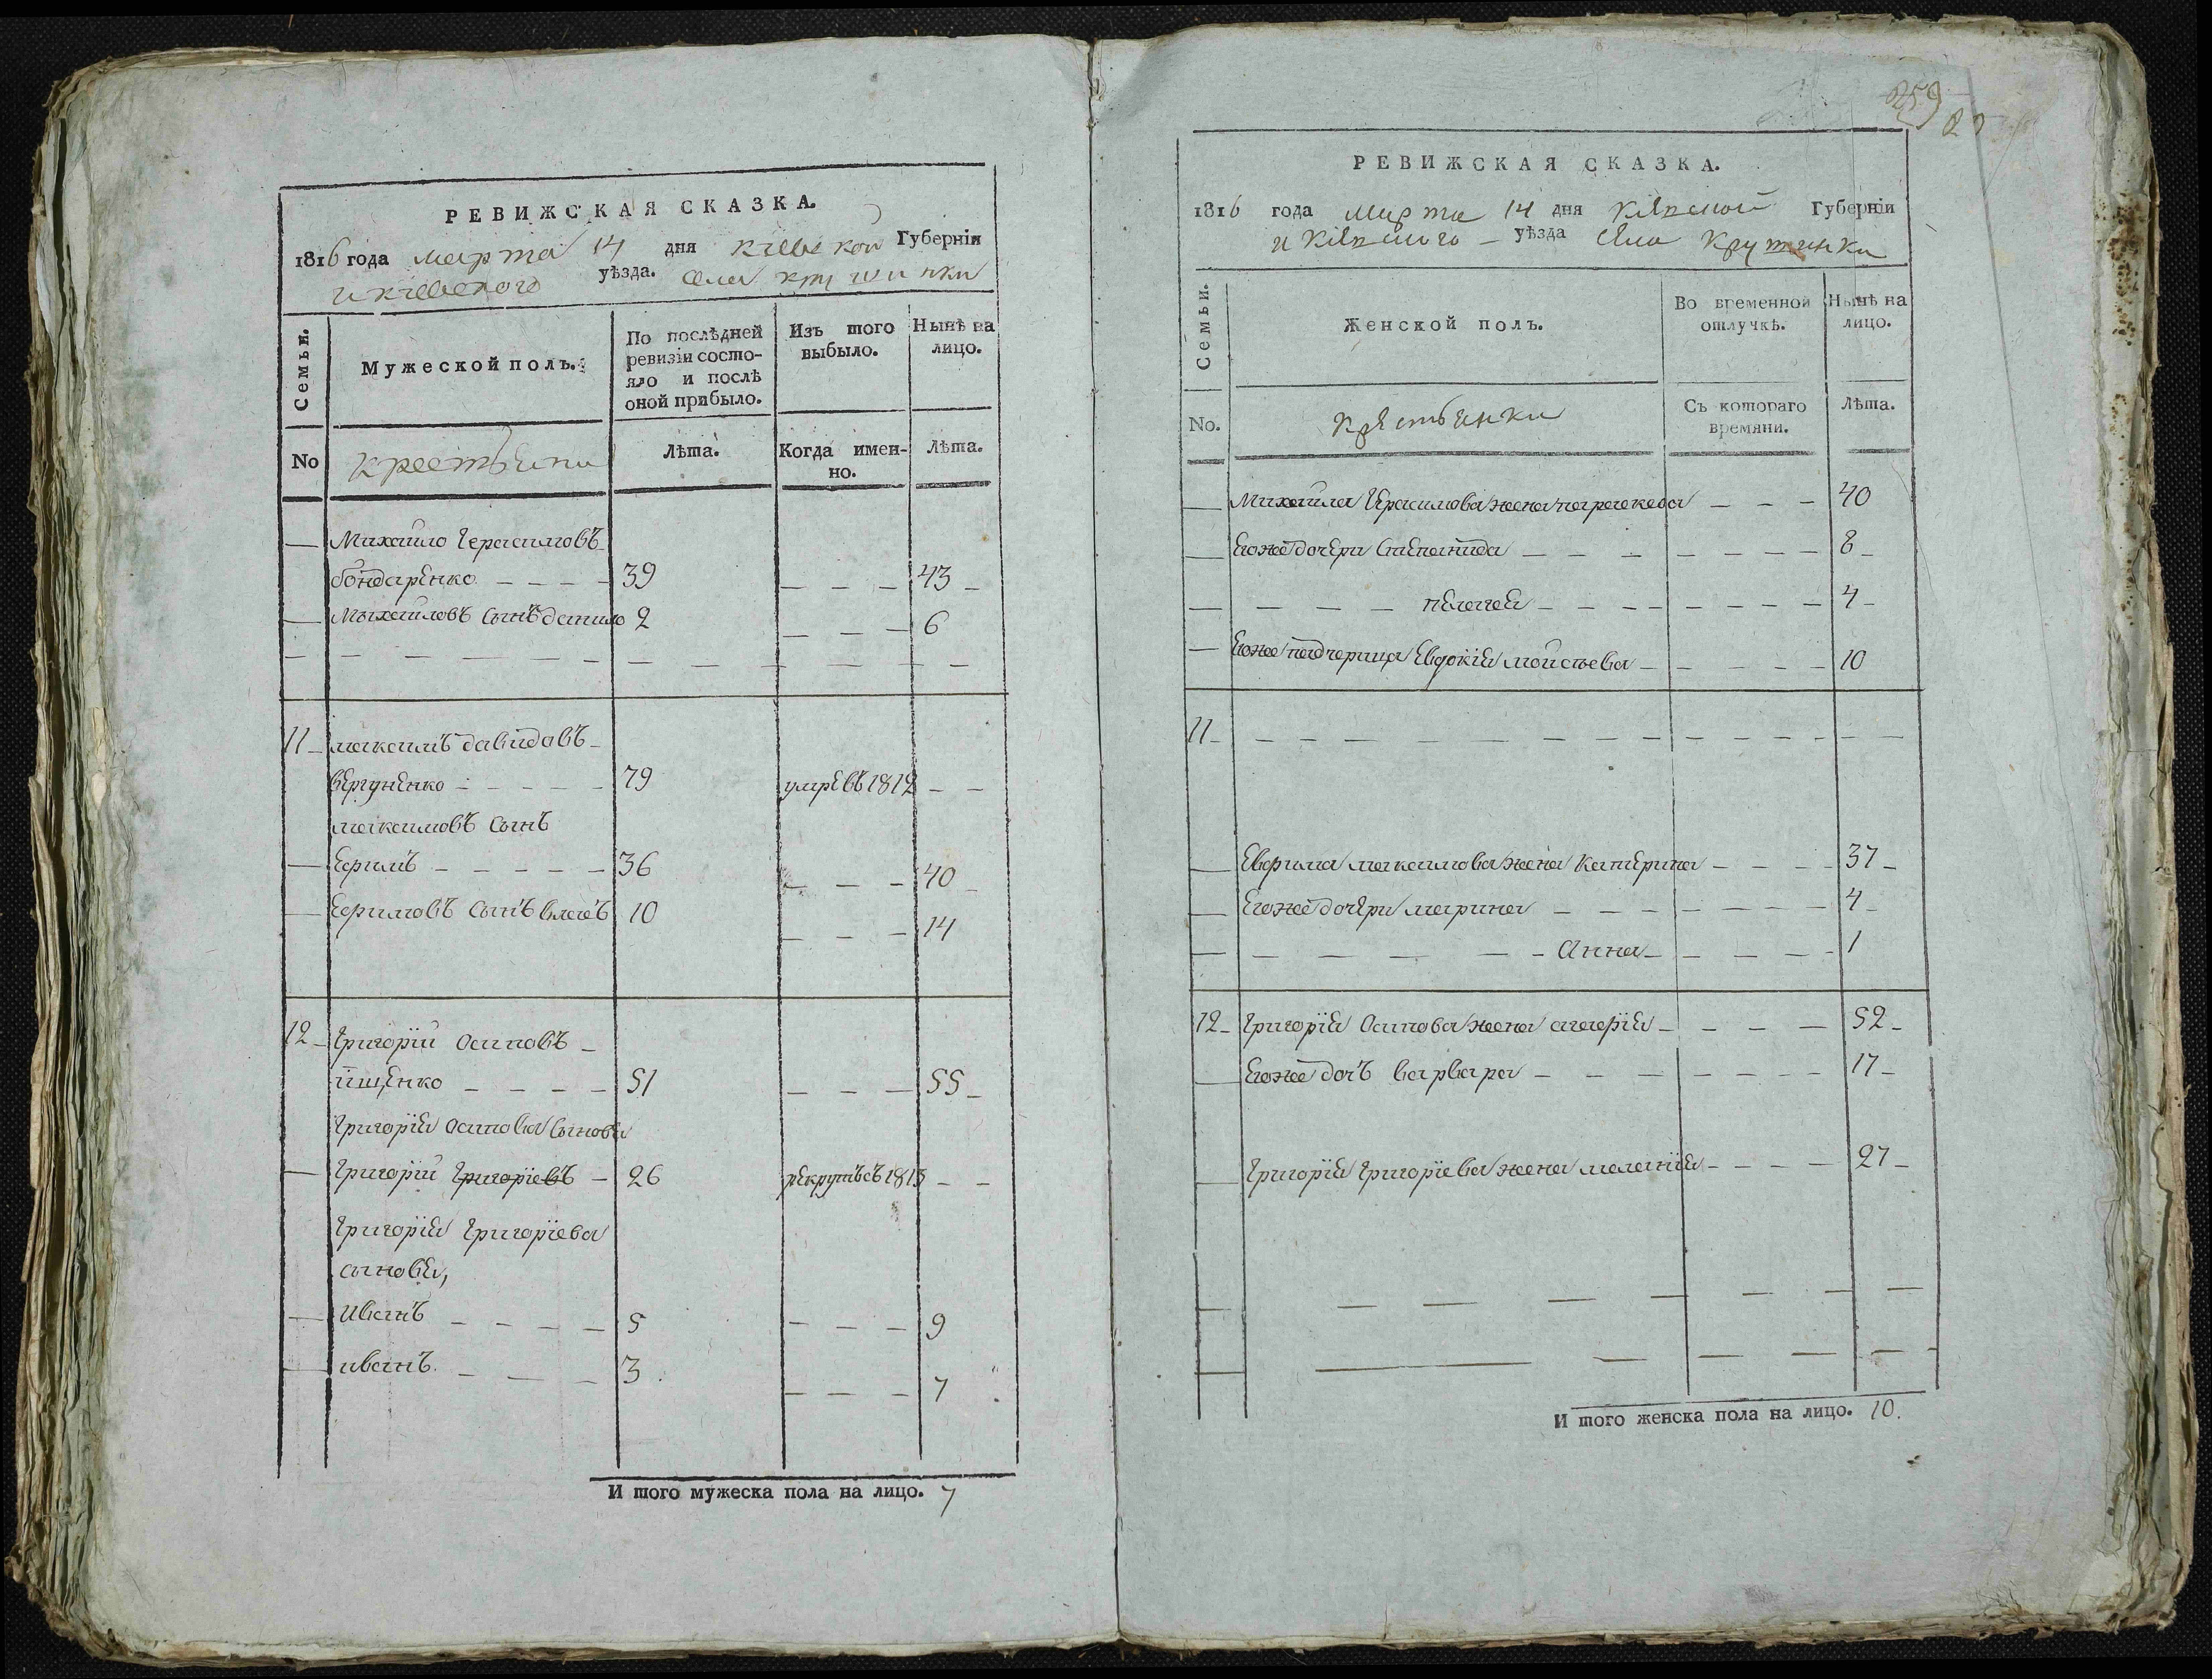 РЕВИЖСКАЯ СКАЗКА.
1816 года марта 14 дня кіевской Губерніи
и кіевского уѣзда. села крушинки
Семьи.
Мужеской полъ.
По послѣдней ревизіи состояло и послѣ оной прибыло.
Изъ того выбыло.
Нынѣ на лицо.
No
крестьяни
Лѣта.
Когда именно.
Лѣта.
— Михайло Герасимовъ
бондаренко — — — — 39 — — — 43 —
— Михайловъ сынъ данило 2 — — — 6
11 — максимъ давидовъ —
вергуненко — — — — — 79 умре въ 1812 — —
максимовъ сынъ
— Ефимъ — — — — — 36 — — — 40 —
— Ефимовъ сынъ власъ 10 — — — 14
12 — Григорій осиповъ —
іищенко — — — — 51 — — — 55 —
Григорія осипова сыновя
— Григорій Григоріевъ — 26 рекрутъ съ 1813 — —
Григорія Григоріева
сыновя,
— Иванъ — — — — 5 — — — 9
— иванъ. — — — 3 — — — 7
И того мужеска пола на лицо. 7
259
РЕВИЖСКАЯ СКАЗКА.
1816 года марта 14 дня Кіевской Губерніи
и Кіевского — уѣзда села Крушинки
Семьи.
Женской полъ.
Во временной отлучкѣ.
Нынѣ на лицо.
No.
крестьянки
Съ котораго времяни.
Лѣта.
— Михайла Герасимова жена параскева — — — 40
— Егоже дочери Степанида — — — — — — — 8 —
— — — — пелагея — — — — — — — 4 —
— Егоже падчерица Евдокія мойсѣева — — — — — 10
11 —
— Евфима максимова жена катерина — — — — 37 —
— Егоже дочери марина — — — — — — — 4 —
— — — — — — Анна — — — — — 1
12 — Григорія Осипова жена агафія — — — — 52 —
— Егоже дочъ варвара — — — — — — — 17 —
— Григорія Григоріева жена меланія — — — — 27 —
И того женска пола на лицо. 10.